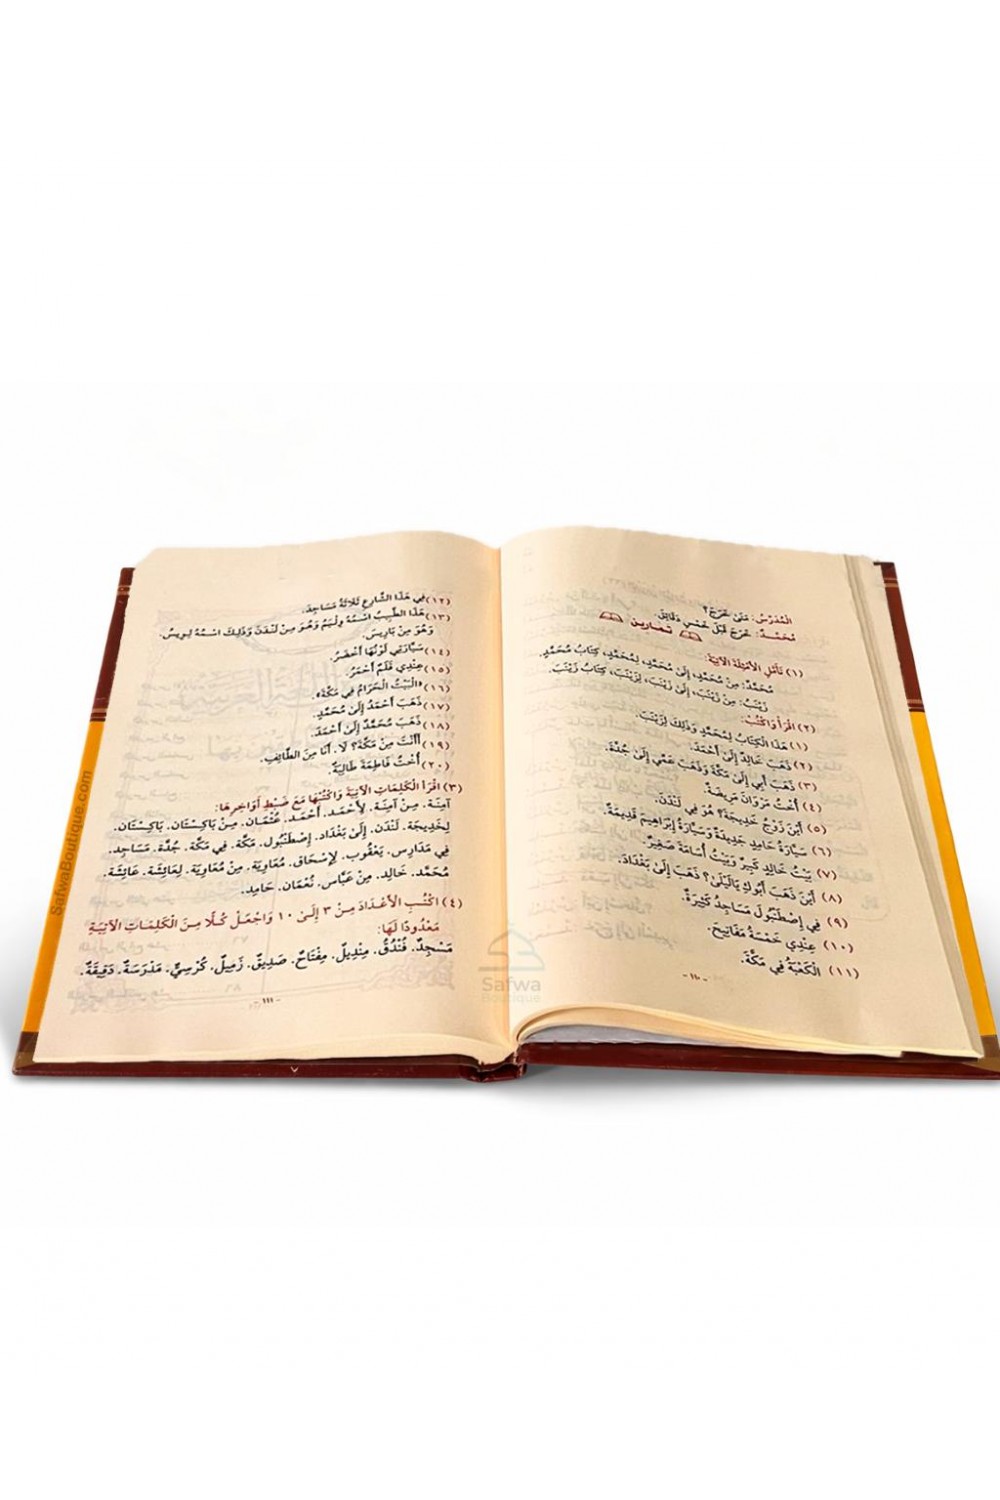 الْمُدَرِّسُ: مَتَىٰ خَرَجَ؟
مُحَمَّدٌ: خَرَجَ قَبْلَ خَمْسِ دَقَائِقَ.
تمارين
(١) تَأَمَّلِ الْأَمْثِلَةَ الْآتِيَةَ:
مُحَمَّدٌ: مِنْ مُحَمَّدٍ، إِلَىٰ مُحَمَّدٍ، لِمُحَمَّدٍ، كِتَابُ مُحَمَّدٍ.
زَيْنَبُ: مِنْ زَيْنَبَ، إِلَىٰ زَيْنَبَ، لِزَيْنَبَ، كِتَابُ زَيْنَبَ.
(٢) اقْرَأْ وَاكْتُبْ:
(١) هَذَا الْكِتَابُ لِمُحَمَّدٍ وَذَلِكَ لِزَيْنَبَ.
(٢) ذَهَبَ خَالِدٌ إِلَىٰ أَحْمَدَ.
(٣) ذَهَبَ أَبِي إِلَىٰ مَكَّةَ وَذَهَبَ عَمِّي إِلَىٰ جُدَّةَ.
(٤) أُخْتُ مَرْوَانَ مَرِيضَةٌ.
(٥) أَيْنَ زَوْجُ خَدِيجَةَ؟ هُوَ فِي لَنْدَنَ.
(٦) سَيَّارَةُ حَامِدٍ جَدِيدَةٌ وَسَيَّارَةُ إِبْرَاهِيمَ قَدِيمَةٌ.
(٧) بَيْتُ خَالِدٍ كَبِيرٌ وَبَيْتُ أُسَامَةَ صَغِيرٌ.
(٨) أَيْنَ ذَهَبَ أَبُوكِ يَالَيْلَىٰ؟ ذَهَبَ إِلَىٰ بَغْدَادَ.
(٩) فِي إِصْطَنْبُولَ مَسَاجِدُ كَثِيرَةٌ.
(١٠) عِنْدِي خَمْسَةُ مَفَاتِيحَ.
(١١) الْكَعْبَةُ فِي مَكَّةَ.
- ١١٠ -
(١٢) فِي هَذَا الشَّارِعِ ثَلَاثَةُ مَسَاجِدَ.
(١٣) هَذَا الطَّبِيبُ اسْمُهُ وِلْيَمُ وَهُوَ مِنْ لَنْدَنَ وَذَلِكَ اسْمُهُ لِوِيسُ
وَهُوَ مِنْ بَارِيسَ.
(١٤) سَيَّارَتِي لَوْنُهَا أَخْضَرُ.
(١٥) عِنْدِي قَلَمٌ أَحْمَرُ.
(١٦) «الْبَيْتُ الْحَرَامُ فِي مَكَّةَ».
(١٧) ذَهَبَ أَحْمَدُ إِلَىٰ مُحَمَّدٍ.
(١٨) ذَهَبَ مُحَمَّدٌ إِلَىٰ أَحْمَدَ.
(١٩) أَأَنْتَ مِنْ مَكَّةَ؟ لَا. أَنَا مِنَ الطَّائِفِ.
(٢٠) أُخْتُ فَاطِمَةَ طَالِبَةٌ.
(٣) اقْرَأِ الْكَلِمَاتِ الْآتِيَةَ وَاكْتُبْهَا مَعَ ضَبْطِ أَوَاخِرِهَا:
آمِنَة. مِنْ آمِنَة. لِأَحْمَد. أَحْمَد. عُثْمَان. مِنْ بَاكِسْتَان. بَاكِسْتَان.
لِخَدِيجَة. لَنْدَن. إِلَىٰ بَغْدَاد. إِصْطَنْبُول. مَكَّة. فِي مَكَّة. جُدَّة. مَسَاجِد.
فِي مَدَارِس. يَعْقُوب. لِإِسْحَاق. مُعَاوِيَة. مِنْ مُعَاوِيَة. لِعَائِشَة. عَائِشَة.
مُحَمَّد. خَالِد. مِنْ عَبَّاس. نُعْمَان. حَامِد.
(٤) اكْتُبِ الْأَعْدَادَ مِنْ ٣ إِلَىٰ ١٠ وَاجْعَلْ كُلًّا مِنَ الْكَلِمَاتِ الْآتِيَةِ
مَعْدُودًا لَهَا:
مَسْجِدٌ. فُنْدُقٌ. مِنْدِيلٌ. مِفْتَاحٌ. صَدِيقٌ. زَمِيلٌ. كُرْسِيٌّ. مَدْرَسَةٌ. دَقِيقَةٌ.
- ١١١ -
Safwa
Boutique
SafwaBoutique.com